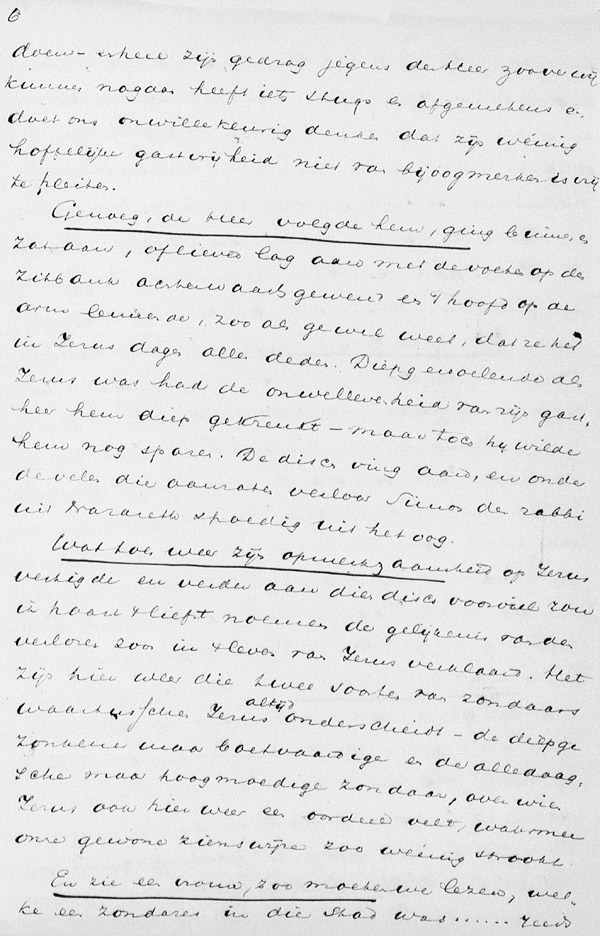 6
doen – geheel zijn gedrag jegens den Heer zooverre wij
kunnen nagaan heeft iets stugs en afgemetens en
doet ons onwillekeurig denken dat zijn weinig
hoffelijke gastvrijheid niet van bijoogmerken is vrij
te pleiten.
Genoeg, de Heer volgde hem, ging binnen en
zat aan, of liever lag aan met de voeten op de
zitbank achterwaarts gewend en 't hoofd op de
arm leunende, zoo als ge wel weet, dat ze het
in Jezus dagen allen deden. Diepgevoelend als
Jezus was had de onwellevenheid van zijn gast,
heer hem diep gekrenkt – maar toch hij wilde
hem nog sparen. De disch ving aan, en onder
de velen die aanzaten verloor Simon den rabbi
uit Nazareth spoedig uit het oog.
Wat toen weer zijn opmerkzaamheid op Jezus
vestigde en verder aan dien disch voorviel zou
ik haast 't liefst noemen de gelijkenis van den
verloren zoon in 't leven van Jezus verklaard. Het
zijn hier weer die twee soorten van zondaars
waartusschen Jezus altijd onderscheidt – de diepge
zonkene maar boetvaardige en de alledaag,
sche maar hoogmoedige zondaar, over wien
Jezus ook hier weer een oordeel velt, waarmee
onze gewone zienswijze zoo weinig strookt.
En zie een vrouw, zoo moeten we lezen, wel-
ke een zondares in die stad was......